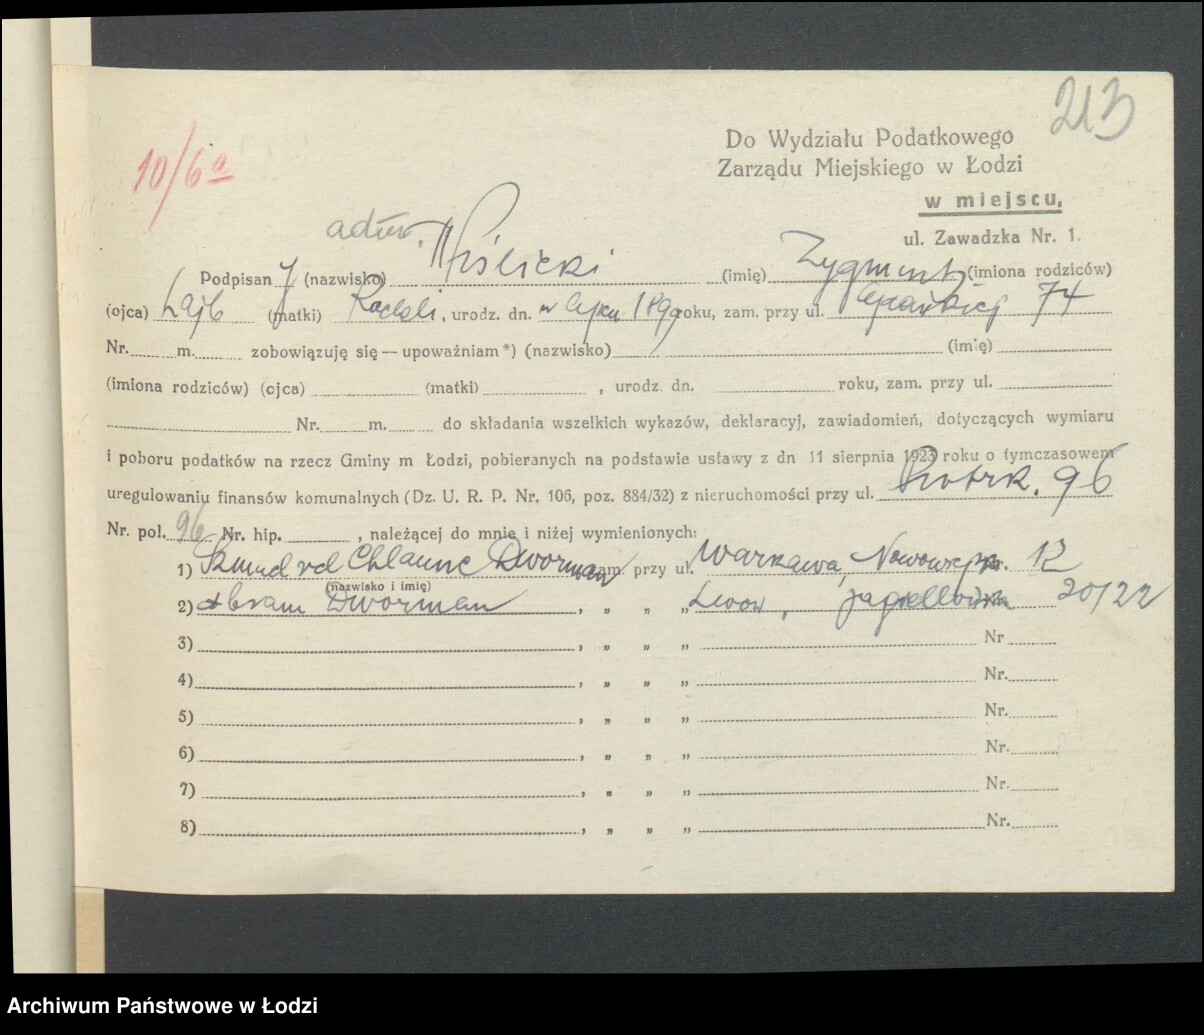 213
10/6a
Do Wydziału Podatkowego
Zarządu Miejskiego w Łodzi
w miejscu,
ul. Zawadzka Nr. 1.
adw. Wiślicki Zygmunt
Podpisany (nazwisko) (imię) (imiona rodziców)
(ojca) Lajb (matki) , urodz. dn. w lipcu 1899 roku, zam. przy ul. 74
Nr. m. zobowiązuję się — upoważniam *) (nazwisko) (imię)
(imiona rodziców) (ojca) (matki) , urodz. dn. roku, zam. przy ul.
Nr. m. do składania wszelkich wykazów, deklaracyj, zawiadomień, dotyczących wymiaru
i poboru podatków na rzecz Gminy m Łodzi, pobieranych na podstawie ustawy z dn 11 sierpnia 1923 roku o tymczasowem
uregulowaniu finansów komunalnych (Dz. U. R. P. Nr. 106, poz. 884/32) z nieruchomości przy ul. Piotrk. 96
Nr. pol. 96 Nr. hip. , należącej do mnie i niżej wymienionych:
1) Szmul vel Chlaune Dworman zam. przy ul. Warszawa, Nr. 12
(nazwisko i imię)
2) Abram Dworman , „ „ „ Lwow, Jagiellońska 20/22
3) , „ „ „ Nr
4) , „ „ „ Nr.
5) , „ „ „ Nr.
6) , „ „ „ Nr.
7) , „ „ „ Nr.
8) , „ „ „ Nr.
Archiwum Państwowe w Łodzi